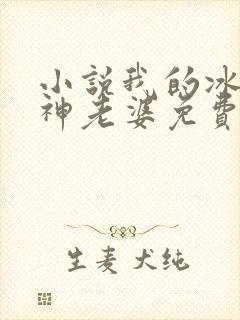 小說我的冰
神老婆免費
生麦犬纯